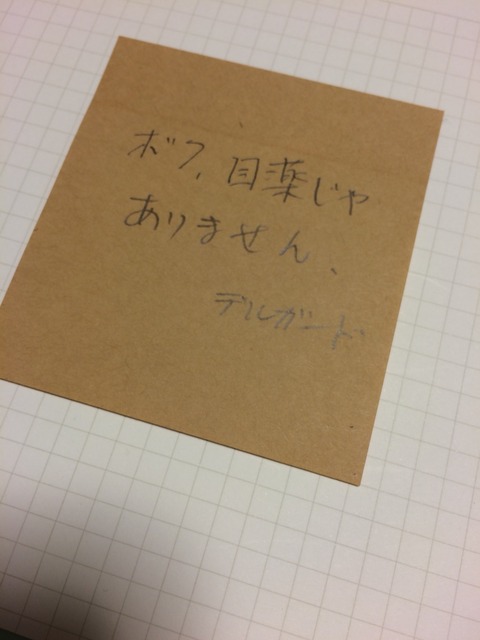 ボフ、目薬じゃ
ありません、
デルガード